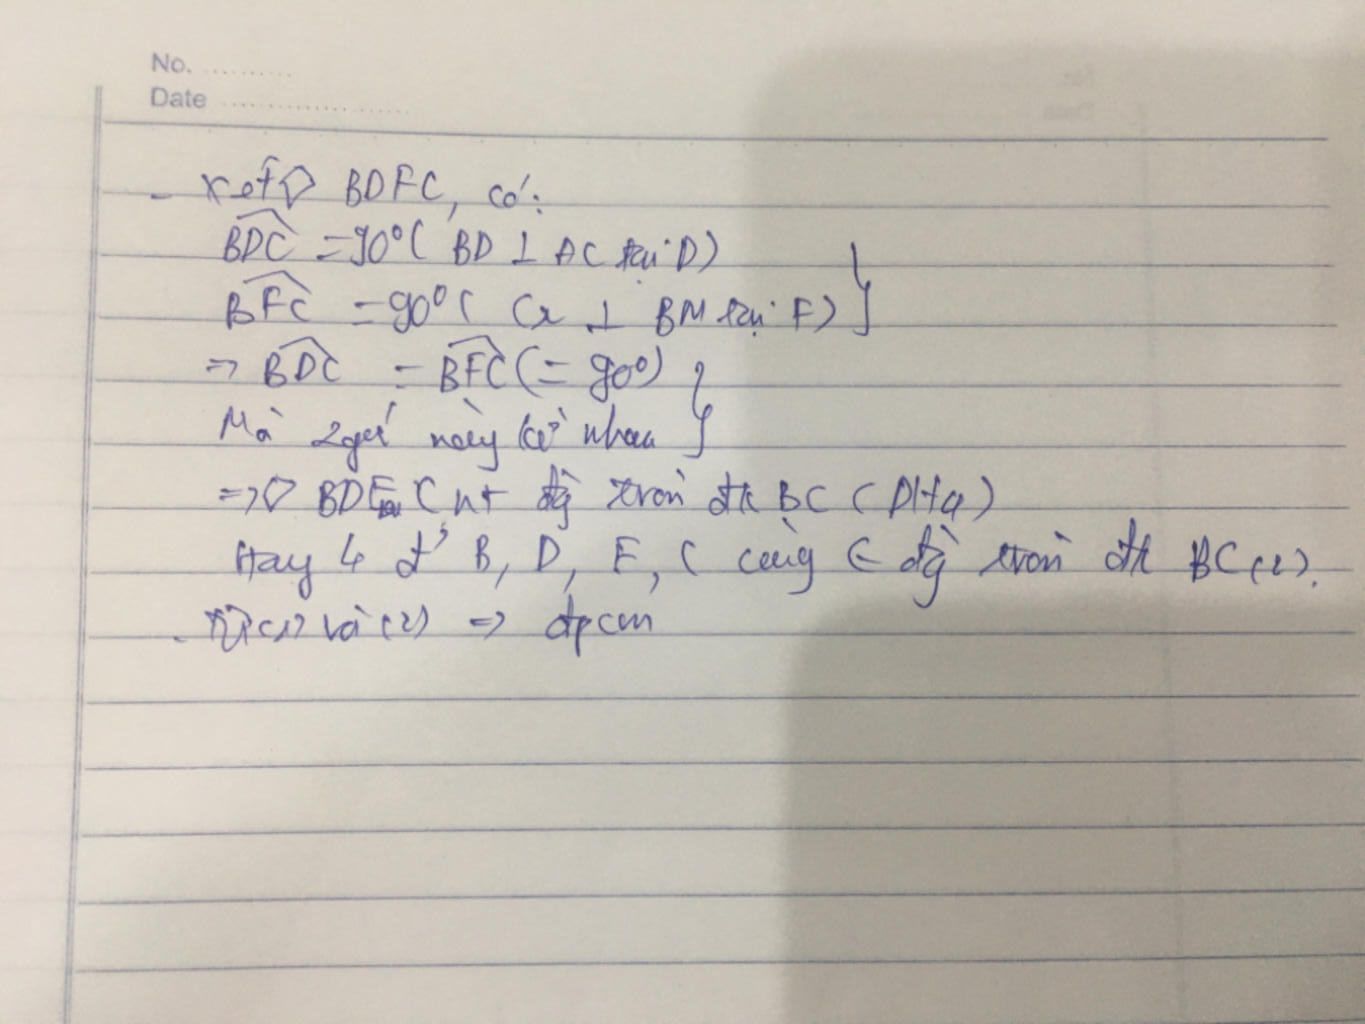 No. ..........
Date ....................
- Xét ◇ BDFC, có:
BDC = 90° ( BD ⊥ AC tại D)
BFC = 90° ( Cx ⊥ BM tại F) }
=> BDC = BFC (= 90°)
Mà 2 góc này kề nhau }
=> ◇ BDFC nt đg tròn đk BC (Đlđq)
Hay 4 đ' B, D, F, C cùng ∈ đg tròn đk BC (2).
- Từ (1) và (2) => đpcm